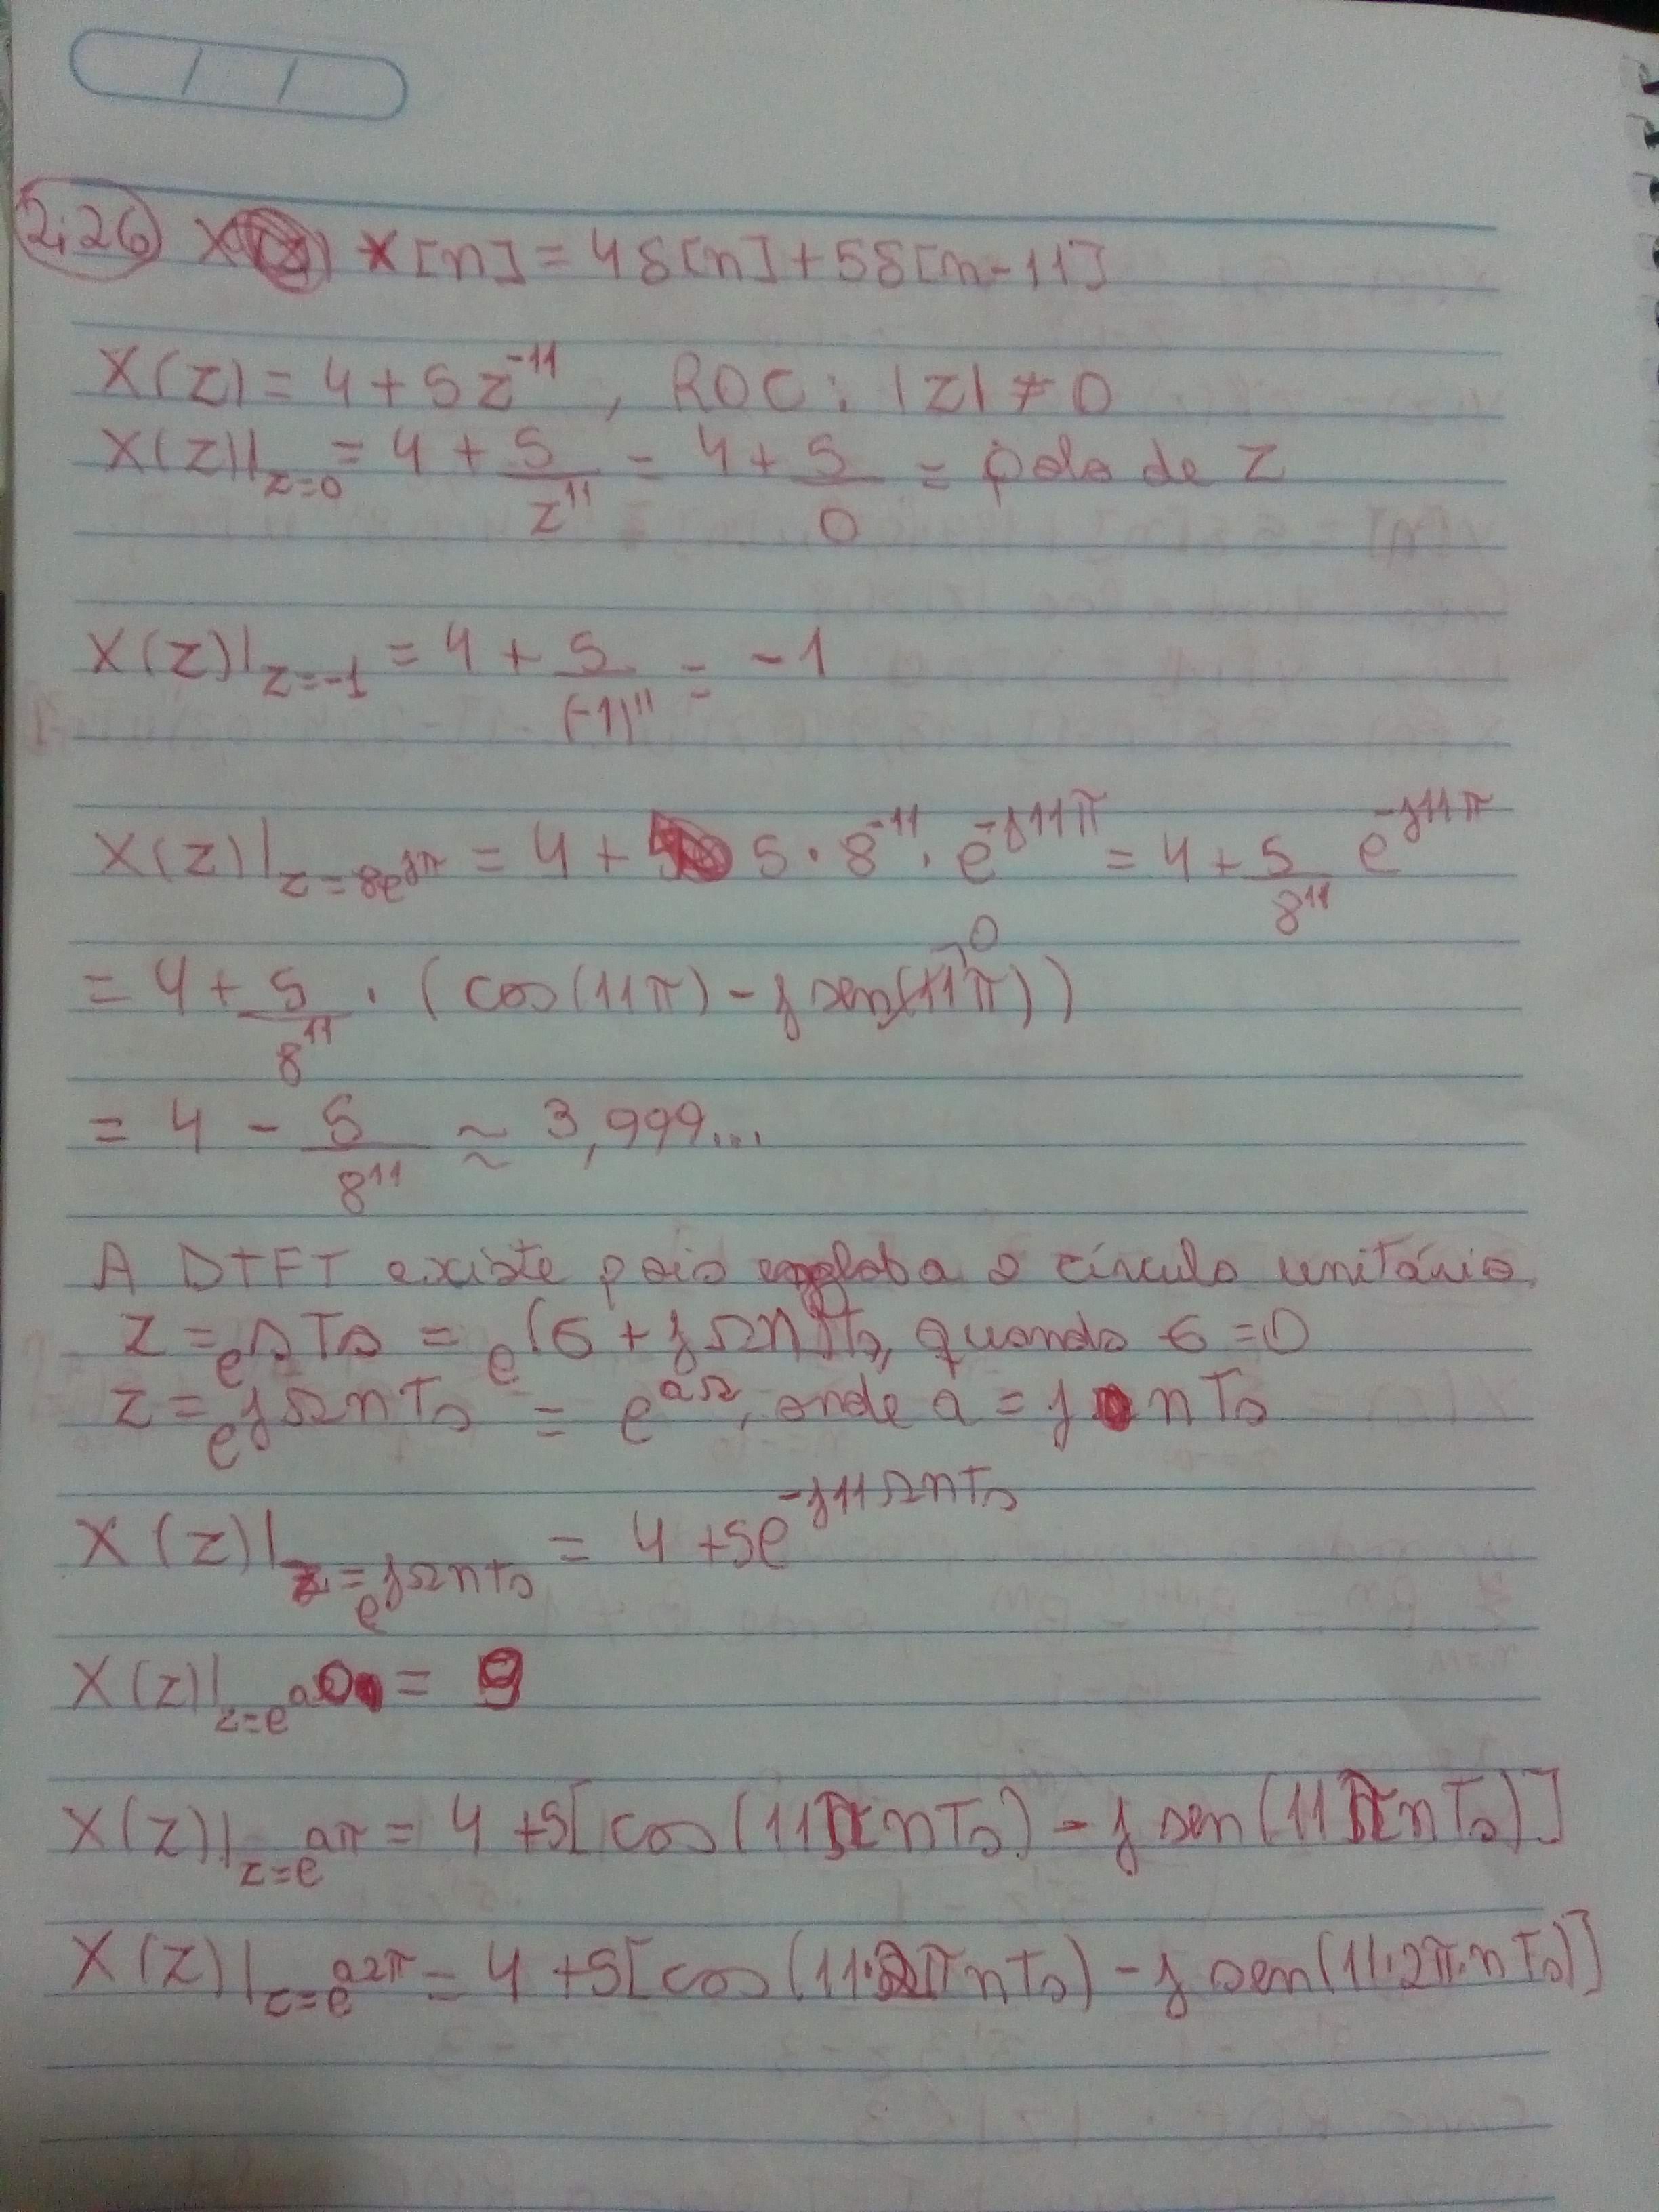 2.26 X(z) x[n] = 4δ[n] + 5δ[n-11]
X(z) = 4 + 5z^-11, ROC: |z| ≠ 0
X(z)|z=0 = 4 + 5/z^11 = 4 + 5/0 = polo de z
X(z)|z=-1 = 4 + 5/(-1)^11 = -1
X(z)|z=8e^jπ = 4 + 5·8^-11·e^-j11π = 4 + 5/8^11 e^-j11π
= 4 + 5/8^11 · (cos(11π) - j sen(11π)) →0
= 4 - 5/8^11 ≈ 3,999...
A DTFT existe pois engloba o círculo unitário.
z = e^sTs = e^(σ + jΩn)Ts, quando σ = 0
z = e^jΩnTs = e^aΩ, onde a = jnTs
X(z)|z=e^jΩnTs = 4 + 5e^-j11ΩnTs
X(z)|z=e^a0 = 9
X(z)|z=e^aπ = 4 + 5[cos(11πnTs) - j sen(11πnTs)]
X(z)|z=e^a2π = 4 + 5[cos(11·2πnTs) - j sen(11·2π·nTs)]